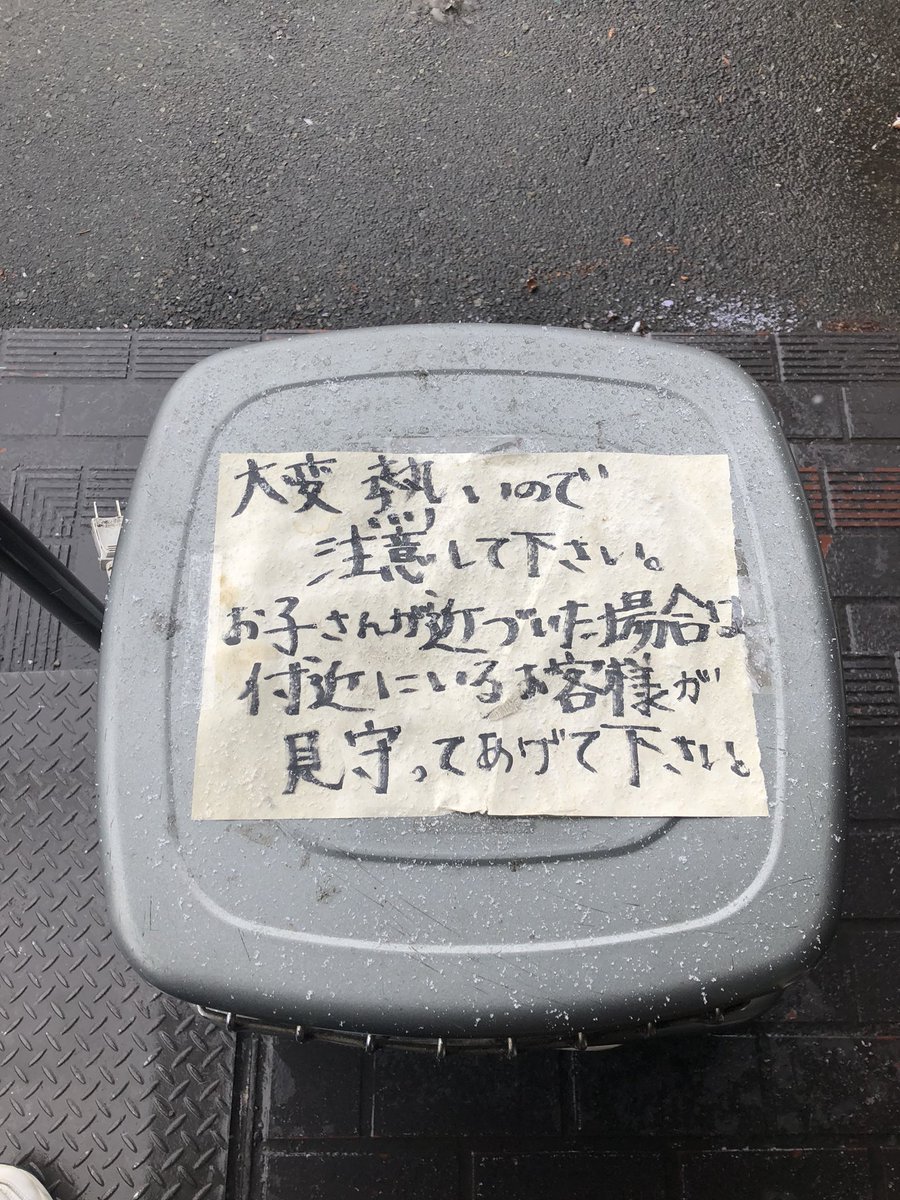 大変熱いので
注意して下さい。
お子さんが近づいた場合は
付近にいるお客様が
見守ってあげて下さい。